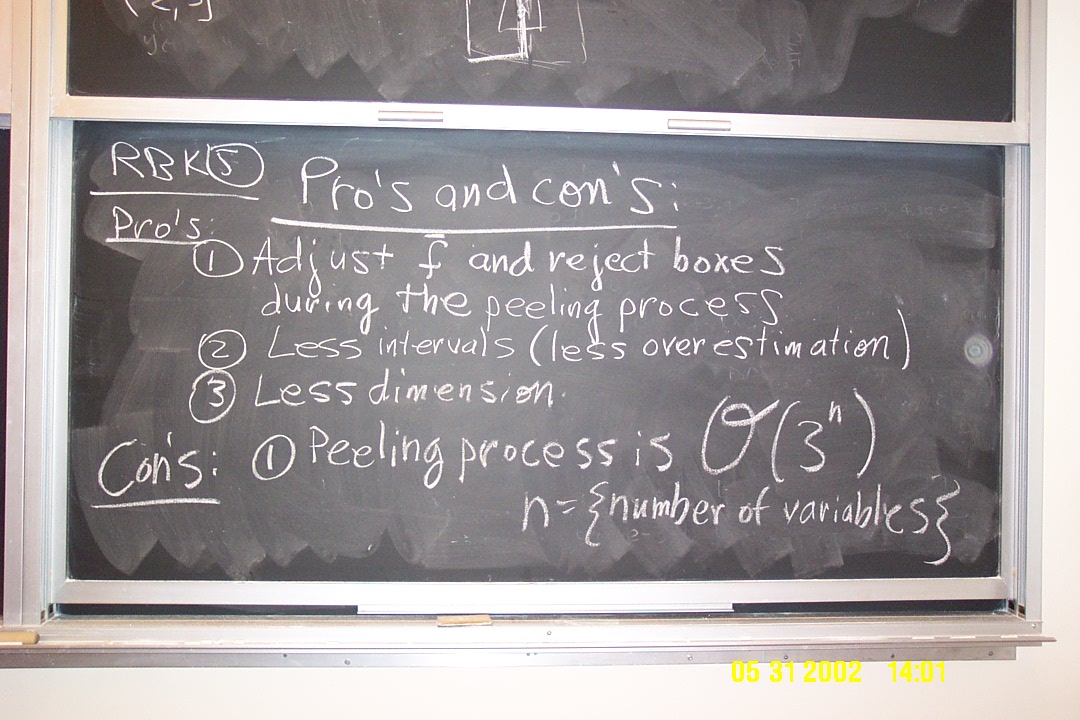 RBK⑤ Pro's and con's:
Pro's:
① Adjust f̅ and reject boxes
during the peeling process
② Less intervals (less overestimation)
③ Less dimension.
Con's: ① Peeling process is O(3ⁿ)
n={number of variables}
05 31 2002 14:01